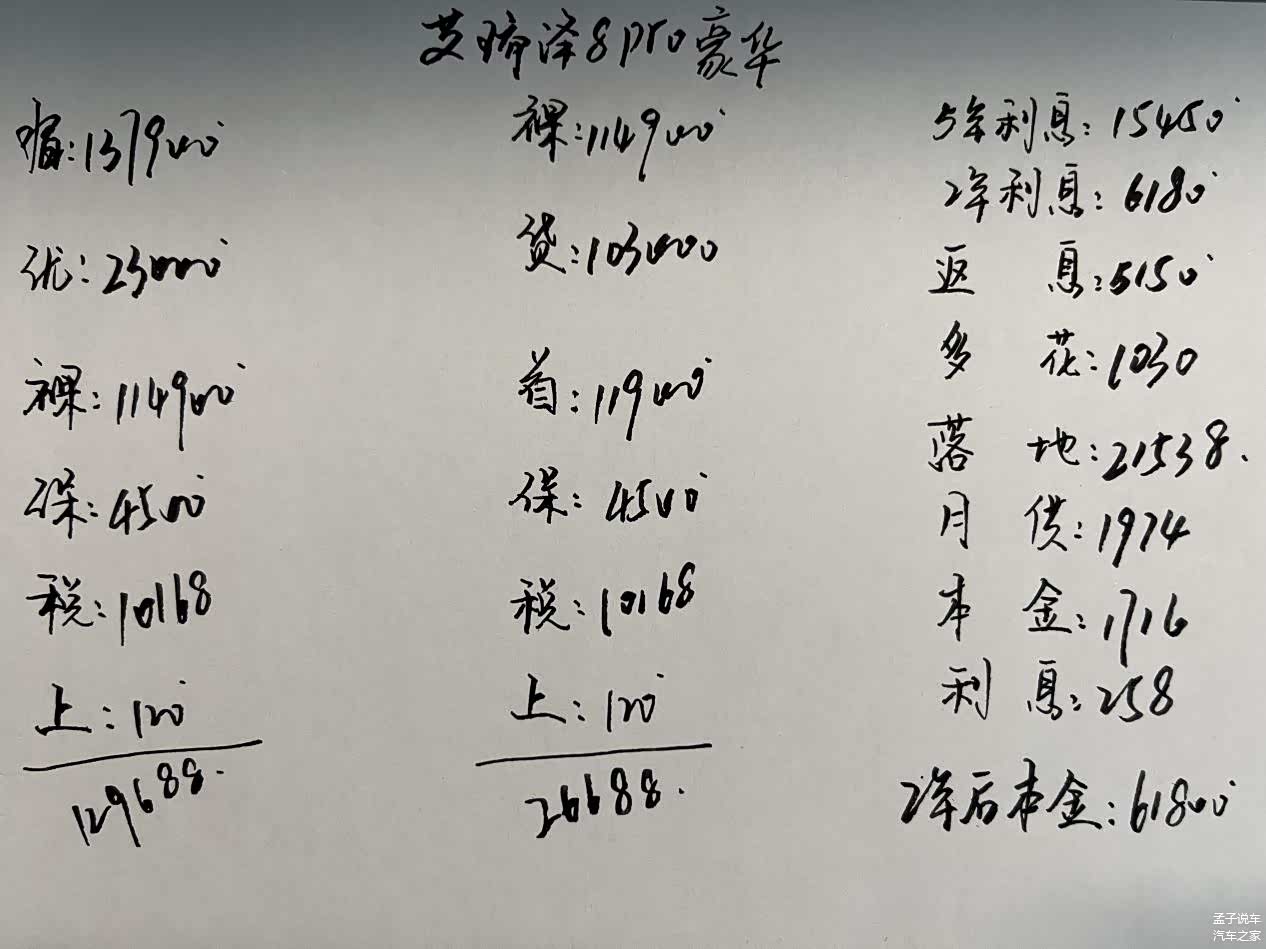 艾瑞泽8pro豪华
指:137900
优:23000
裸:114900
保:4500
税:10168
上:120
129688.
裸:114900
贷:103000
首:11900
保:4500
税:10168
上:120
26688.
5年利息:15450
2年利息:6180
返 息:5150
多 花:1030
落 地:21538.
月 供:1974
本 金:1716
利 息:258
2年后本金:61800
孟子说车
汽车之家